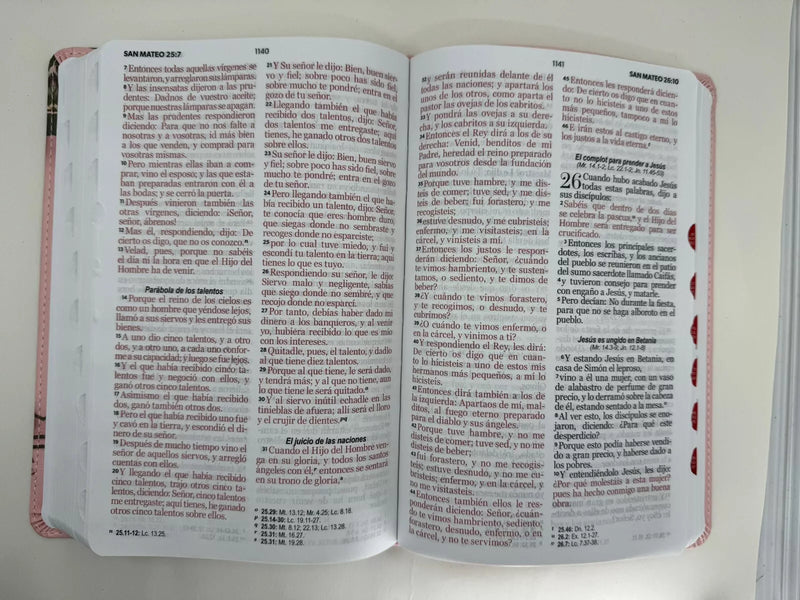 SAN MATEO 25:7
1140
7 Entonces todas aquellas vírgenes se
levantaron, y arreglaron sus lámparas.
8 Y las insensatas dijeron a las pru-
dentes: Dadnos de vuestro aceite;
porque nuestras lámparas se apagan.
9 Mas las prudentes respondieron
diciendo: Para que no nos falte a
nosotras y a vosotras, id más bien
a los que venden, y comprad para
vosotras mismas.
10 Pero mientras ellas iban a com-
prar, vino el esposo; y las que esta-
ban preparadas entraron con él a
las bodas; y se cerró la puerta.
11 Después vinieron también las
otras vírgenes, diciendo: ¡Señor,
señor, ábrenos!
12 Mas él, respondiendo, dijo: De
cierto os digo, que no os conozco.
13 Velad, pues, porque no sabéis
el día ni la hora en que el Hijo del
Hombre ha de venir.
Parábola de los talentos
14 Porque el reino de los cielos es
como un hombre que yéndose lejos,
llamó a sus siervos y les entregó sus
bienes.
15 A uno dio cinco talentos, y a otro
dos, y a otro uno, a cada uno confor-
me a su capacidad; y luego se fue lejos.
16 Y el que había recibido cinco ta-
lentos fue y negoció con ellos, y
ganó otros cinco talentos.
17 Asimismo el que había recibido
dos, ganó también otros dos.
18 Pero el que había recibido uno fue
y cavó en la tierra, y escondió el di-
nero de su señor.
19 Después de mucho tiempo vino el
señor de aquellos siervos, y arregló
cuentas con ellos.
20 Y llegando el que había recibido
cinco talentos, trajo otros cinco ta-
lentos, diciendo: Señor, cinco talentos
me entregaste; aquí tienes, he ganado
otros cinco talentos sobre ellos.
25.11-12: Lc. 13.25.
21 Y Su señor le dijo: Bien, buen sier-
vo y fiel; sobre poco has sido fiel,
sobre mucho te pondré; entra en el
gozo de tu señor.
22 Llegando también el que había
recibido dos talentos, dijo: Señor,
dos talentos me entregaste; aquí
tienes, he ganado otros dos talentos
sobre ellos.
23 Su señor le dijo: Bien, buen siervo
y fiel; sobre poco has sido fiel, sobre
mucho te pondré; entra en el gozo
de tu señor.
24 Pero llegando también el que ha-
bía recibido un talento, dijo: Señor,
te conocía que eres hombre duro,
que siegas donde no sembraste y
recoges donde no esparciste;
25 por lo cual tuve miedo, y fui y
escondí tu talento en la tierra; aquí
tienes lo que es tuyo.
26 Respondiendo su señor, le dijo:
Siervo malo y negligente, sabías
que siego donde no sembré, y que
recojo donde no esparcí.
27 Por tanto, debías haber dado mi
dinero a los banqueros, y al venir
yo, hubiera recibido lo que es mío
con los intereses.
28 Quitadle, pues, el talento, y dadlo
al que tiene diez talentos.
29 Porque al que tiene, le será dado,
y tendrá más; y al que no tiene, aun
lo que tiene le será quitado.
30 Y al siervo inútil echadle en las
tinieblas de afuera; allí será el lloro
y el crujir de dientes.
El juicio de las naciones
31 Cuando el Hijo del Hombre ven-
ga en su gloria, y todos los santos
ángeles con él, entonces se sentará
en su trono de gloria,
25.29: Mt. 13.12; Mr. 4.25; Lc. 8.18.
25.14-30: Lc. 19.11-27.
25.30: Mt. 8.12; 22.13; Lc. 13.28.
25.31: Mt. 16.27.
25.31: Mt. 19.28.
1141
SAN MATEO 26:10
32 y serán reunidas delante de él
todas las naciones; y apartará los
unos de los otros, como aparta el
pastor las ovejas de los cabritos.
33 Y pondrá las ovejas a su dere-
cha, y los cabritos a su izquierda.
34 Entonces el Rey dirá a los de su
derecha: Venid, benditos de mi
Padre, heredad el reino preparado
para vosotros desde la fundación
del mundo.
35 Porque tuve hambre, y me dis-
teis de comer; tuve sed, y me dis-
teis de beber; fui forastero, y me
recogisteis;
36 estuve desnudo, y me cubristeis;
enfermo, y me visitasteis; en la
cárcel, y vinisteis a mí.
37 Entonces los justos le responde-
rán diciendo: Señor, ¿cuándo
te vimos hambriento, y te susten-
tamos, o sediento, y te dimos de
beber?
38 ¿Y cuándo te vimos forastero,
y te recogimos, o desnudo, y te
cubrimos?
39 ¿O cuándo te vimos enfermo, o
en la cárcel, y vinimos a ti?
40 Y respondiendo el Rey, les dirá:
De cierto os digo que en cuan-
to lo hicisteis a uno de estos mis
hermanos más pequeños, a mí lo
hicisteis.
41 Entonces dirá también a los de
la izquierda: Apartaos de mí, mal-
ditos, al fuego eterno preparado
para el diablo y sus ángeles.
42 Porque tuve hambre, y no me
disteis de comer; tuve sed, y no me
disteis de beber;
43 fui forastero, y no me recogis-
teis; estuve desnudo, y no me cu-
bristeis; enfermo, y en la cárcel, y
no me visitasteis.
44 Entonces también ellos le res-
ponderán diciendo: Señor, ¿cuán-
do te vimos hambriento, sediento,
forastero, desnudo, enfermo, o en
la cárcel, y no te servimos?
45 Entonces les responderá diciendo:
De cierto os digo que en cuan-
to no lo hicisteis a uno de estos
más pequeños, tampoco a mí lo
hicisteis.
46 E irán estos al castigo eterno, y
los justos a la vida eterna.
El complot para prender a Jesús
(Mr. 14.1-2; Lc. 22.1-2; Jn. 11.45-53)
26 Cuando hubo acabado Jesús
todas estas palabras, dijo a
sus discípulos:
2 Sabéis que dentro de dos días
se celebra la pascua, y el Hijo del
Hombre será entregado para ser
crucificado.
3 Entonces los principales sacer-
dotes, los escribas, y los ancianos
del pueblo se reunieron en el patio
del sumo sacerdote llamado Caifás,
4 y tuvieron consejo para prender
con engaño a Jesús, y matarle.
5 Pero decían: No durante la fiesta,
para que no se haga alboroto en el
pueblo.
Jesús es ungido en Betania
(Mr. 14.3-9; Jn. 12.1-8)
6 Y estando Jesús en Betania, en
casa de Simón el leproso,
7 vino a él una mujer, con un vaso
de alabastro de perfume de gran
precio, y lo derramó sobre la cabeza
de él, estando sentado a la mesa.
8 Al ver esto, los discípulos se eno-
jaron, diciendo: ¿Para qué este
desperdicio?
9 Porque esto podía haberse vendi-
do a gran precio, y haberse dado a
los pobres.
10 Y entendiéndolo Jesús, les dijo:
¿Por qué molestáis a esta mujer?
pues ha hecho conmigo una buena
obra.
25.46: Dn. 12.2.
26.2: Ex. 12.1-27.
26.7: Lc. 7.37-38.